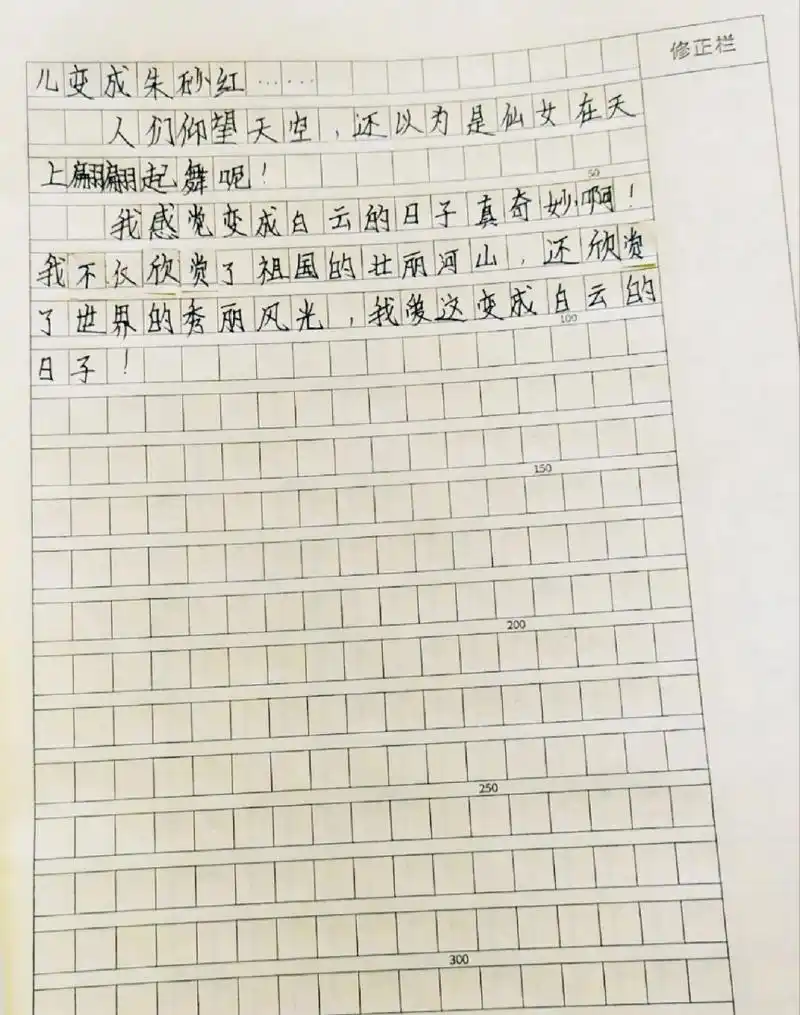 修正栏
儿变成朱砂红……
人们仰望天空，还以为是仙女在天
上翩翩起舞呢！
50
我感觉变成白云的日子真奇妙啊！
我不仅欣赏了祖国的壮丽河山，还欣赏
了世界的秀丽风光，我爱这变成白云的
100
日子！
150
200
250
300